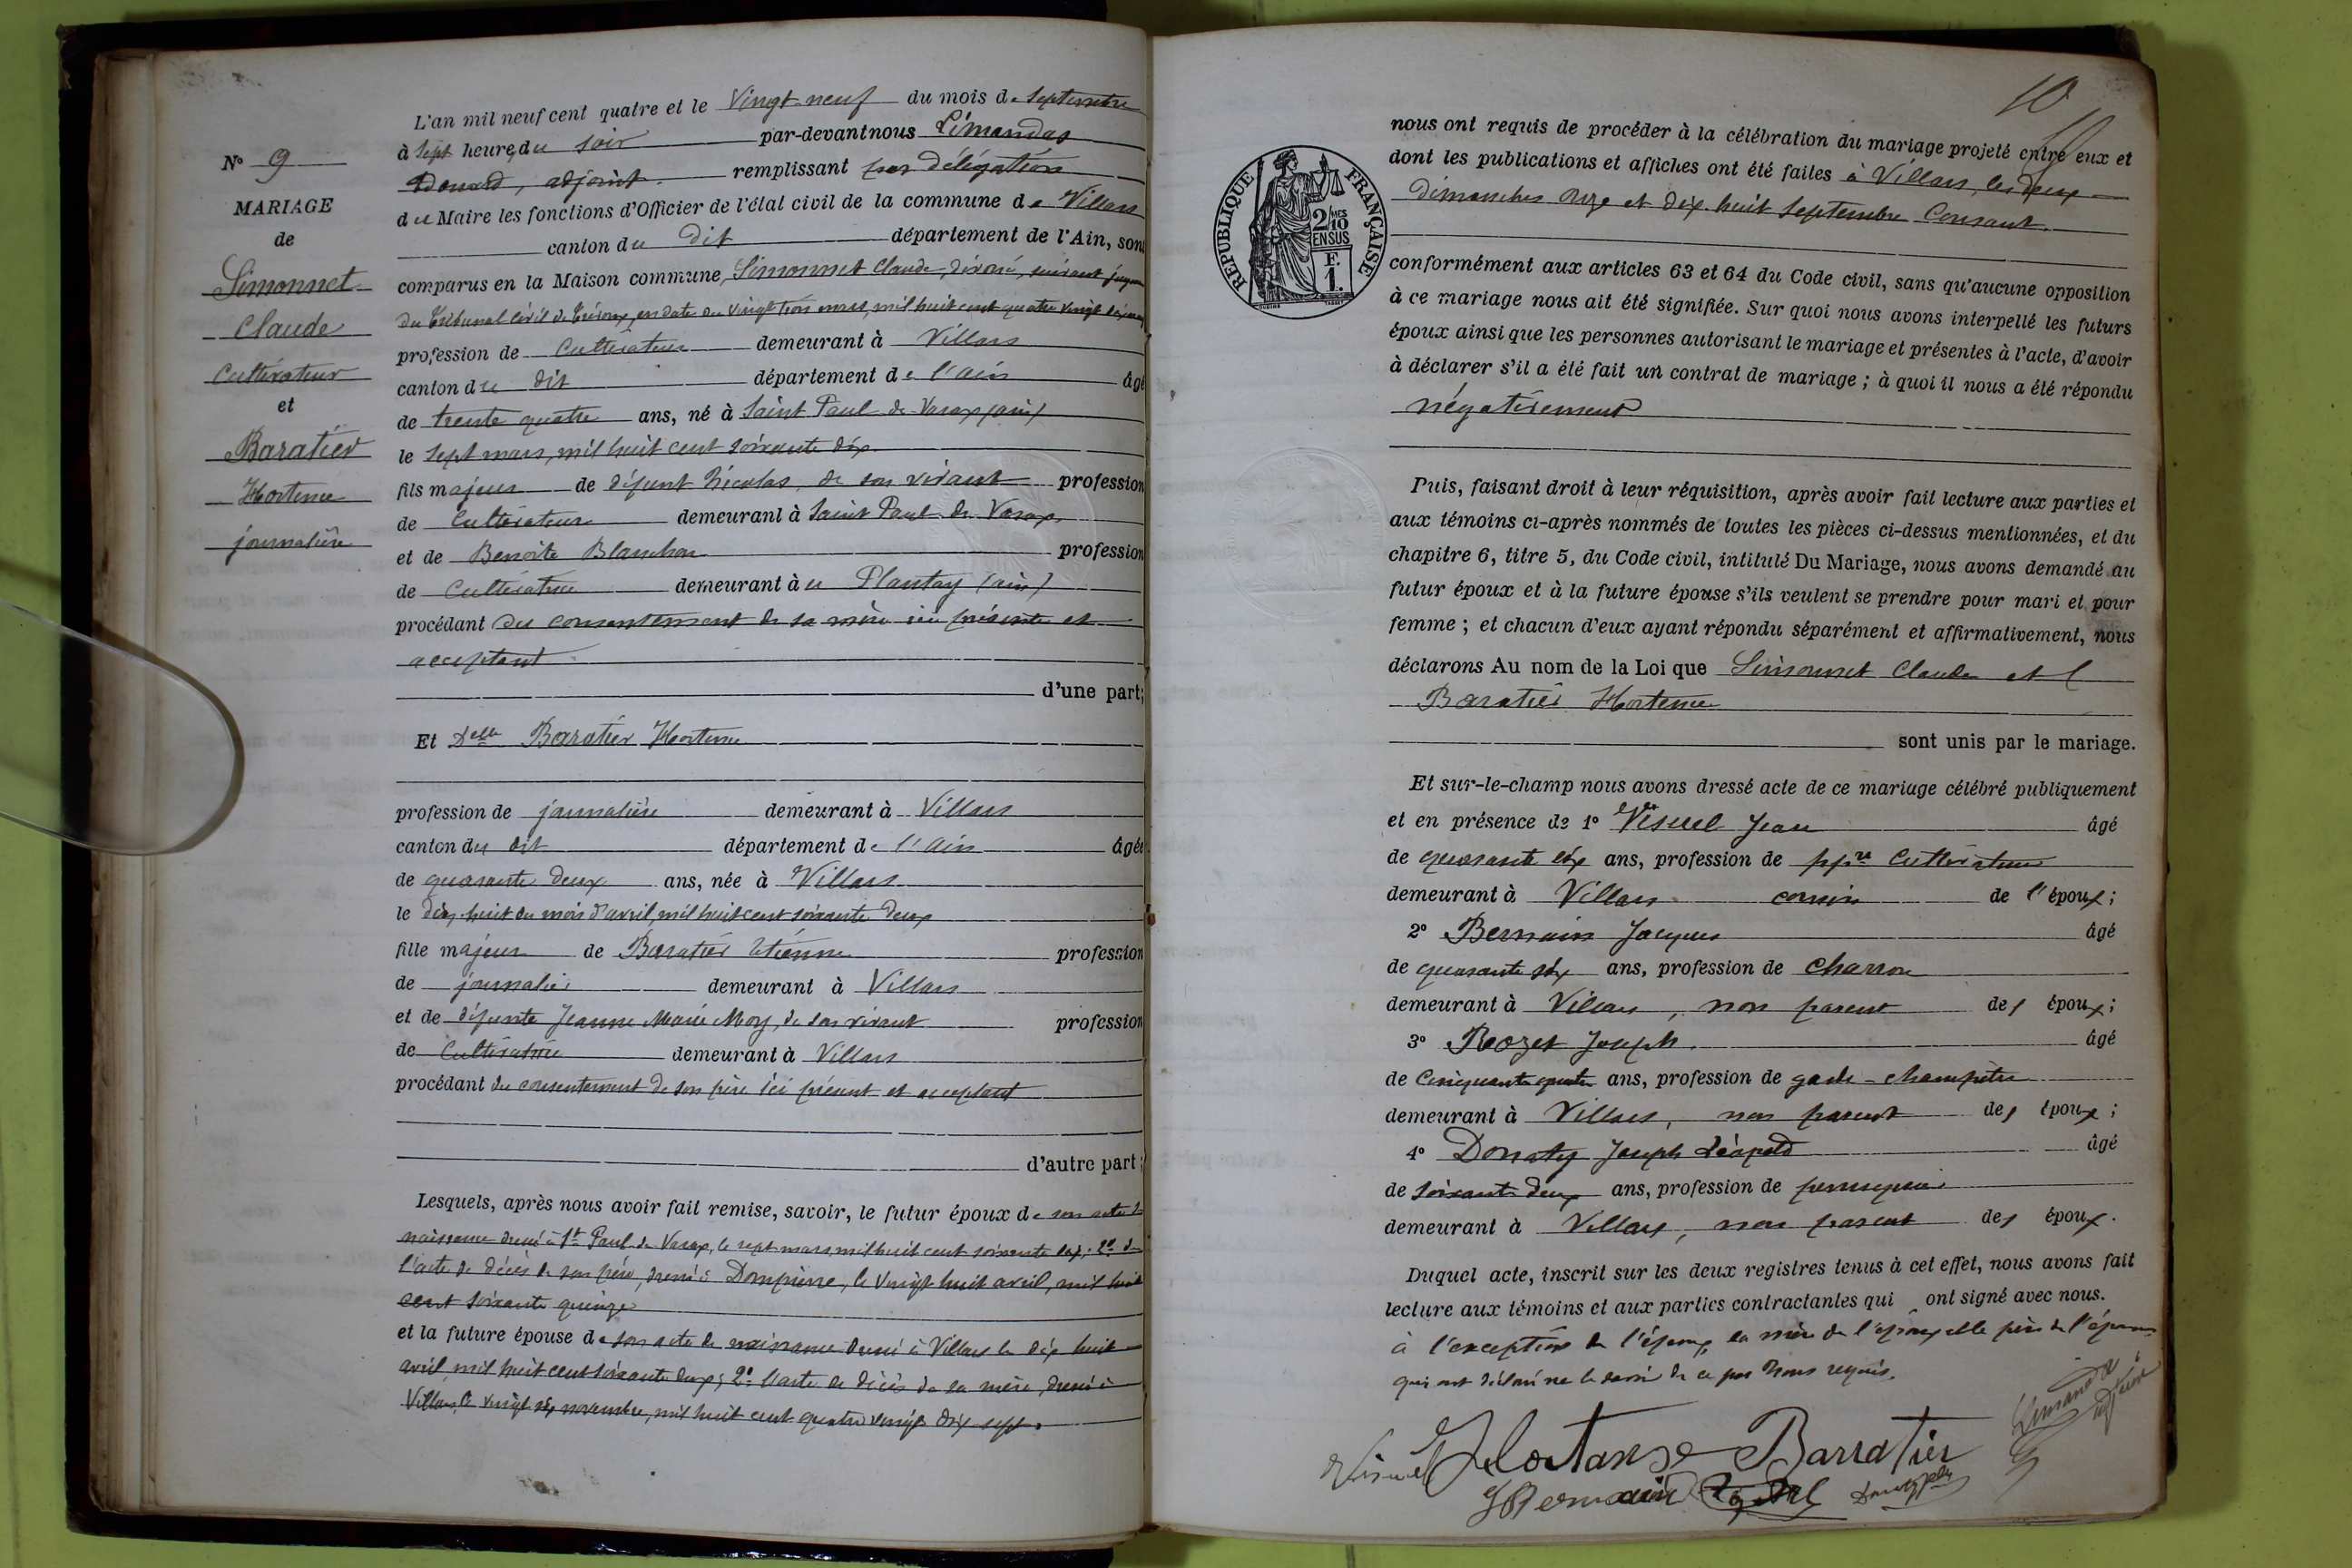 N° 9
MARIAGE
de
Simonnet
Claude
Cultivateur
et
Baratier
Hortense
journalière
L'an mil neuf cent quatre et le Vingt-neuf du mois de Septembre
à Sept heures du soir par-devant nous Limandas
Edouard, adjoint remplissant par délégation
du Maire les fonctions d'Officier de l'état civil de la commune de Villars
canton du dit département de l'Ain, sont
comparus en la Maison commune, Simonnet Claude, divorcé, suivant
du Tribunal Civil de Trévoux, en date du vingt trois mars, mil huit cent quatre vingt
profession de Cultivateur demeurant à Villars
canton du dit département de l'ain âgé
de trente quatre ans, né à Saint Paul de Varax (ain)
le Sept mars, mil huit cent soixante dix
fils majeur de défunt Nicolas, de son vivant profession
de Cultivateur demeurant à Saint Paul de Varax
et de Benoite Blanchon profession
de Cultivatrice demeurant à u Plantay (ain)
procédant du consentement de sa mère ici présente et
acceptant
d'une part;
Et Delle Baratier Hortense
profession de journalière demeurant à Villars
canton du dit département de l'Ain âgée
de quarante deux ans, née à Villars
le dix-huit du mois d'avril, mil huit cent soixante deux
fille majeure de Baratier Etienne profession
de journalier demeurant à Villars
et de défunte Jeanne Marie Moy, de son vivant profession
de Cultivatrice demeurant à Villars
procédant du consentement de son père ici présent et acceptant
d'autre part;
Lesquels, après nous avoir fait remise, savoir, le futur époux de son acte de
naissance dressé à St Paul de Varax, le sept mars, mil huit cent soixante dix; 2° de
l'acte de décès de son père, dressé à Dompierre, le Vingt huit avril, mil huit
cent soixante quinze
et la future épouse de son acte de naissance dressé à Villars le dix huit
avril, mil huit cent soixante deux; 2° l'acte de décès de sa mère, dressé à
Villars, le vingt six novembre, mil huit cent quatre vingt dix sept.
10
REPUBLIQUE FRANÇAISE
2/10 MES
EN SUS
F.
1.
nous ont requis de procéder à la célébration du mariage projeté entre eux et
dont les publications et affiches ont été faites à Villars, les deux
dimanches onze et dix-huit Septembre Courant.
conformément aux articles 63 et 64 du Code civil, sans qu'aucune opposition
à ce mariage nous ait été signifiée. Sur quoi nous avons interpellé les futurs
époux ainsi que les personnes autorisant le mariage et présentes à l'acte, d'avoir
à déclarer s'il a été fait un contrat de mariage; à quoi il nous a été répondu
négativement
Puis, faisant droit à leur réquisition, après avoir fait lecture aux parties et
aux témoins ci-après nommés de toutes les pièces ci-dessus mentionnées, et du
chapitre 6, titre 5, du Code civil, intitulé Du Mariage, nous avons demandé au
futur époux et à la future épouse s'ils veulent se prendre pour mari et pour
femme; et chacun d'eux ayant répondu séparément et affirmativement, nous
déclarons Au nom de la Loi que Simonnet Claude et
Baratier Hortense
sont unis par le mariage.
Et sur-le-champ nous avons dressé acte de ce mariage célébré publiquement
et en présence de 1° Visuel Jean âgé
de quarante six ans, profession de ppre Cultivateur
demeurant à Villars cousin de l'époux;
2° Bernain Jacques âgé
de quarante six ans, profession de charron
demeurant à Villars, non parent des époux;
3° Rozet Joseph. âgé
de cinquante quatre ans, profession de garde-champêtre
demeurant à Villars, non parent des époux;
4° Donaty Joseph Léopold âgé
de soixante deux ans, profession de perruquier
demeurant à Villars, non parent des époux.
Duquel acte, inscrit sur les deux registres tenus à cet effet, nous avons fait
lecture aux témoins et aux parties contractantes qui ont signé avec nous.
à l'exception de l'époux, la mère de l'époux, et le père de l'épouse
qui ont déclaré ne le savoir de ce par nous requis.
Limandas
adjoint
Visuel Hortanse Barratier